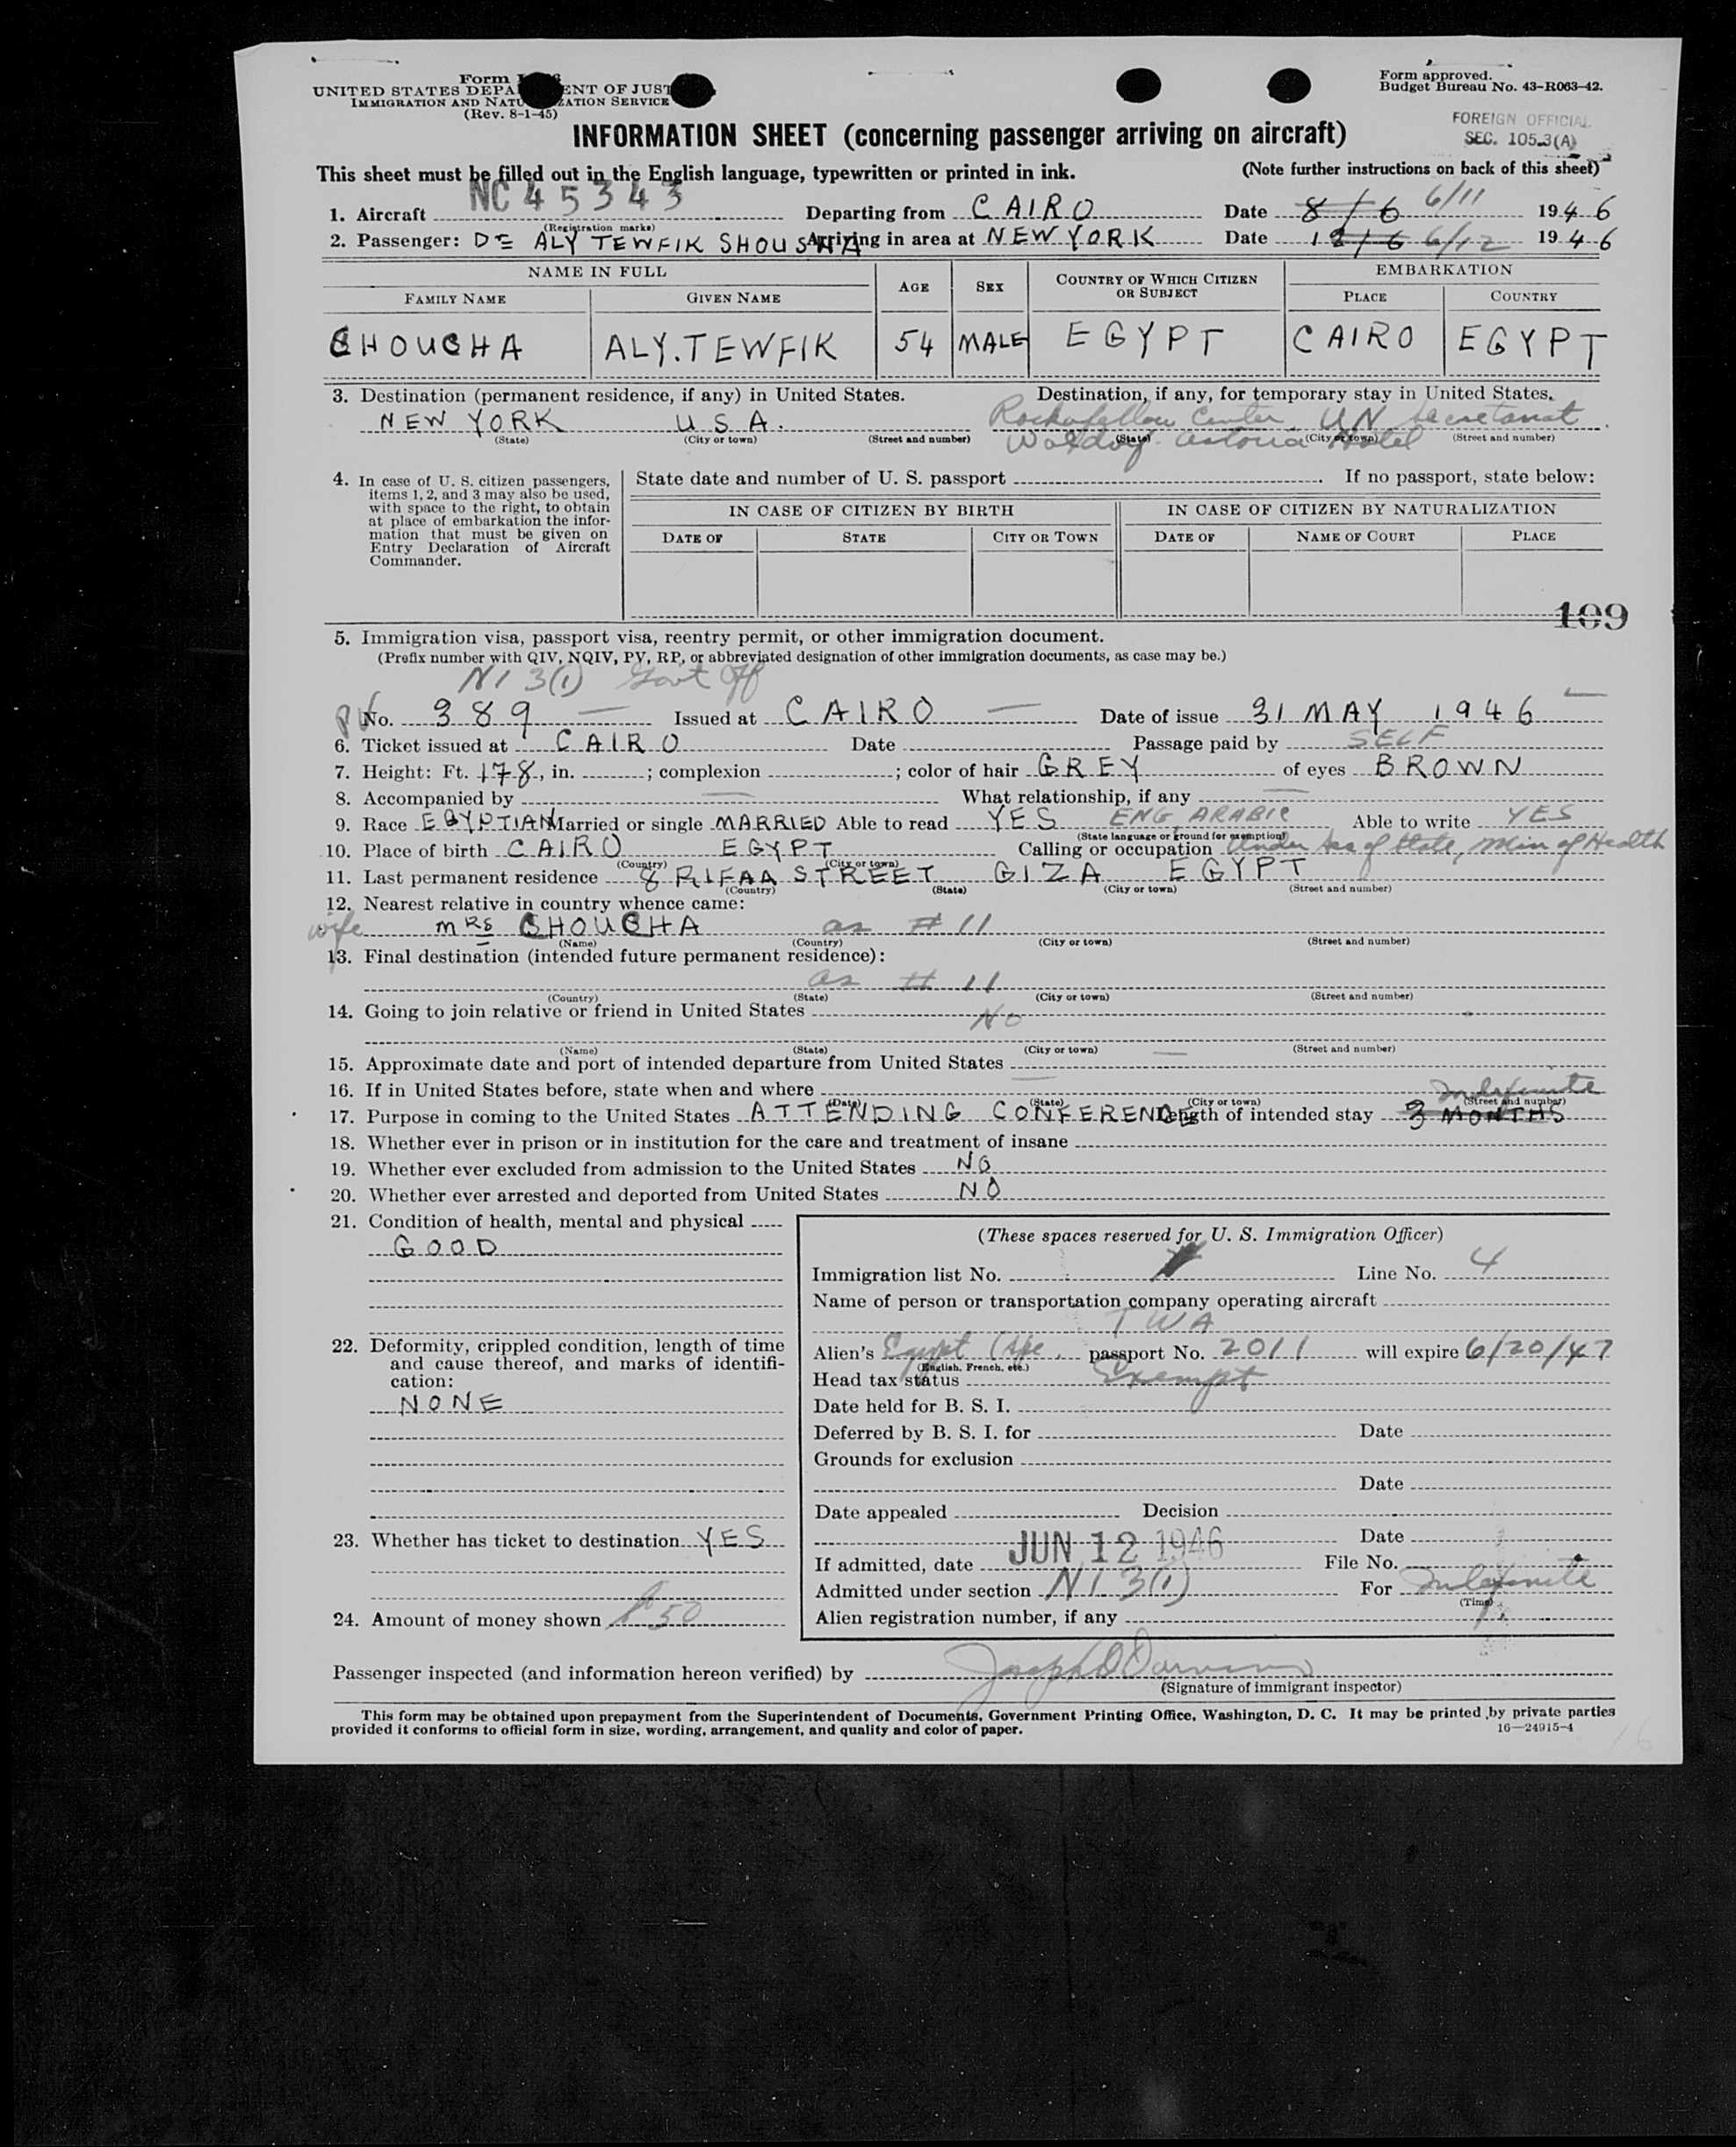 Form I
UNITED STATES DEPA ENT OF JUST
IMMIGRATION AND NATU ZATION SERVICE
(Rev. 8-1-45)
Form approved.
Budget Bureau No. 43-R063-42.
FOREIGN OFFICIAL
SEC. 105.3(A)
INFORMATION SHEET (concerning passenger arriving on aircraft)
This sheet must be filled out in the English language, typewritten or printed in ink. (Note further instructions on back of this sheet)
1. Aircraft NC 45343 Departing from CAIRO Date 8/6 6/11 1946
(Registration marks)
2. Passenger: Dr ALY TEWFIK SHOUSHA Arriving in area at NEW YORK Date 12/6 6/12 1946
NAME IN FULL AGE SEX COUNTRY OF WHICH CITIZEN OR SUBJECT EMBARKATION
FAMILY NAME GIVEN NAME PLACE COUNTRY
CHOUCHA ALY.TEWFIK 54 MALE EGYPT CAIRO EGYPT
3. Destination (permanent residence, if any) in United States. Destination, if any, for temporary stay in United States.
NEW YORK U S A. Rockefellow Center UN Secretariat
(State) (City or town) (Street and number) (State) (City or town) (Street and number)
Waldorf Astoria Hotel
4. In case of U. S. citizen passengers, items 1, 2, and 3 may also be used, with space to the right, to obtain at place of embarkation the information that must be given on Entry Declaration of Aircraft Commander.
State date and number of U. S. passport . If no passport, state below:
IN CASE OF CITIZEN BY BIRTH IN CASE OF CITIZEN BY NATURALIZATION
DATE OF STATE CITY OR TOWN DATE OF NAME OF COURT PLACE
109
5. Immigration visa, passport visa, reentry permit, or other immigration document.
(Prefix number with QIV, NQIV, PV, RP, or abbreviated designation of other immigration documents, as case may be.)
NI 3(1) Govt Off
PV No. 389 — Issued at CAIRO — Date of issue 31 MAY 1946
6. Ticket issued at CAIRO Date Passage paid by SELF
7. Height: Ft. 178, in. ; complexion ; color of hair GREY of eyes BROWN
8. Accompanied by — What relationship, if any —
9. Race EGYPTIAN Married or single MARRIED Able to read YES ENG ARABIC Able to write YES
(State language or ground for exemption)
10. Place of birth CAIRO EGYPT Calling or occupation Under Sec of State, Min of Health
(Country) (City or town)
11. Last permanent residence 8 RIFAA STREET GIZA EGYPT
(Country) (State) (City or town) (Street and number)
12. Nearest relative in country whence came:
wife Mrs CHOUCHA as # 11
(Name) (Country) (City or town) (Street and number)
13. Final destination (intended future permanent residence):
as # 11
(Country) (State) (City or town) (Street and number)
14. Going to join relative or friend in United States
No
(Name) (State) (City or town) (Street and number)
15. Approximate date and port of intended departure from United States —
16. If in United States before, state when and where —
(Date) (State) (City or town) (Street and number)
Indefinite
17. Purpose in coming to the United States ATTENDING CONFERENCE Length of intended stay 3 MONTHS
18. Whether ever in prison or in institution for the care and treatment of insane
19. Whether ever excluded from admission to the United States NO
20. Whether ever arrested and deported from United States NO
21. Condition of health, mental and physical
GOOD
22. Deformity, crippled condition, length of time and cause thereof, and marks of identification:
NONE
23. Whether has ticket to destination YES
24. Amount of money shown 50
(These spaces reserved for U. S. Immigration Officer)
Immigration list No. Line No. 4
Name of person or transportation company operating aircraft
TWA
Alien's Egypt passport No. 2011 will expire 6/20/47
(English, French, etc.)
Head tax status Exempt
Date held for B. S. I.
Deferred by B. S. I. for Date
Grounds for exclusion
Date
Date appealed Decision
Date
If admitted, date JUN 12 1946 File No.
Admitted under section NI 3(1) For Indefinite
(Time)
Alien registration number, if any
Passenger inspected (and information hereon verified) by
(Signature of immigrant inspector)
This form may be obtained upon prepayment from the Superintendent of Documents, Government Printing Office, Washington, D. C. It may be printed by private parties
provided it conforms to official form in size, wording, arrangement, and quality and color of paper. 16—24915-4